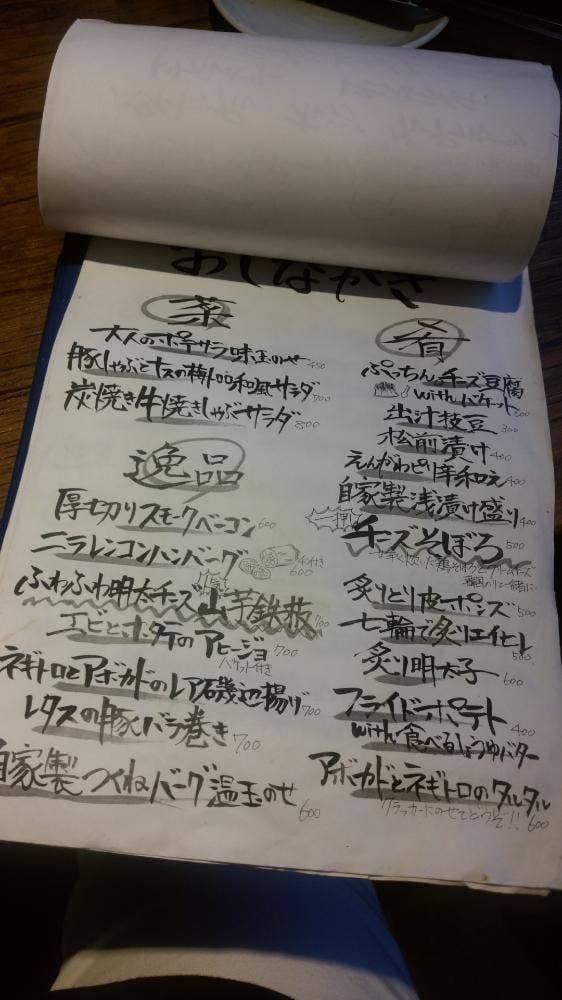 おしながき
菜
大人のポテサラ味玉のせ 450
豚しゃぶとナスの梅トロロ和風サラダ 700
炭焼き牛焼きしゃぶサラダ 800
逸品
厚切りスモークベーコン 600
ニラレンコンハンバーグ 600
ふわふわ明太チーズ山芋鉄板 700
エビとホタテのアヒージョ 700
バケット付き
ネギトロとアボカドのレア磯辺揚げ 700
レタスの豚バラ巻き 700
自家製つくねバーグ温玉のせ 600
肴
ぷっちんチーズ豆腐
withバケット 500
出汁枝豆 300
松前漬け 400
えんがわピリ辛和え 400
自家製浅漬け盛り 400
一押し
チーズそぼろ 500
炙りとり皮ポンズ 500
七輪で炙りエイヒレ 500
炙り明太子 600
フライドポテト 400
with食べるしょうゆバター
アボカドとネギトロのタルタル 600
クラッカーにのせてどうぞ!!